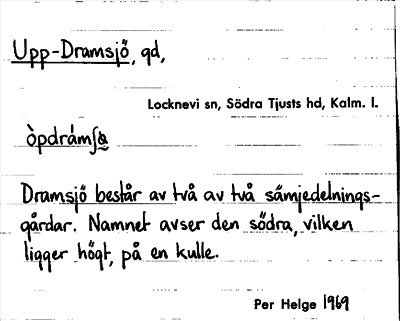 Upp-Dramsjö, gd,
Locknevi sn, Södra Tjusts hd, Kalm. l.
Dramsjö består av två av två sämjedelnings-
gårdar. Namnet avser den södra, vilken
ligger högt, på en kulle.
Per Helge 1969